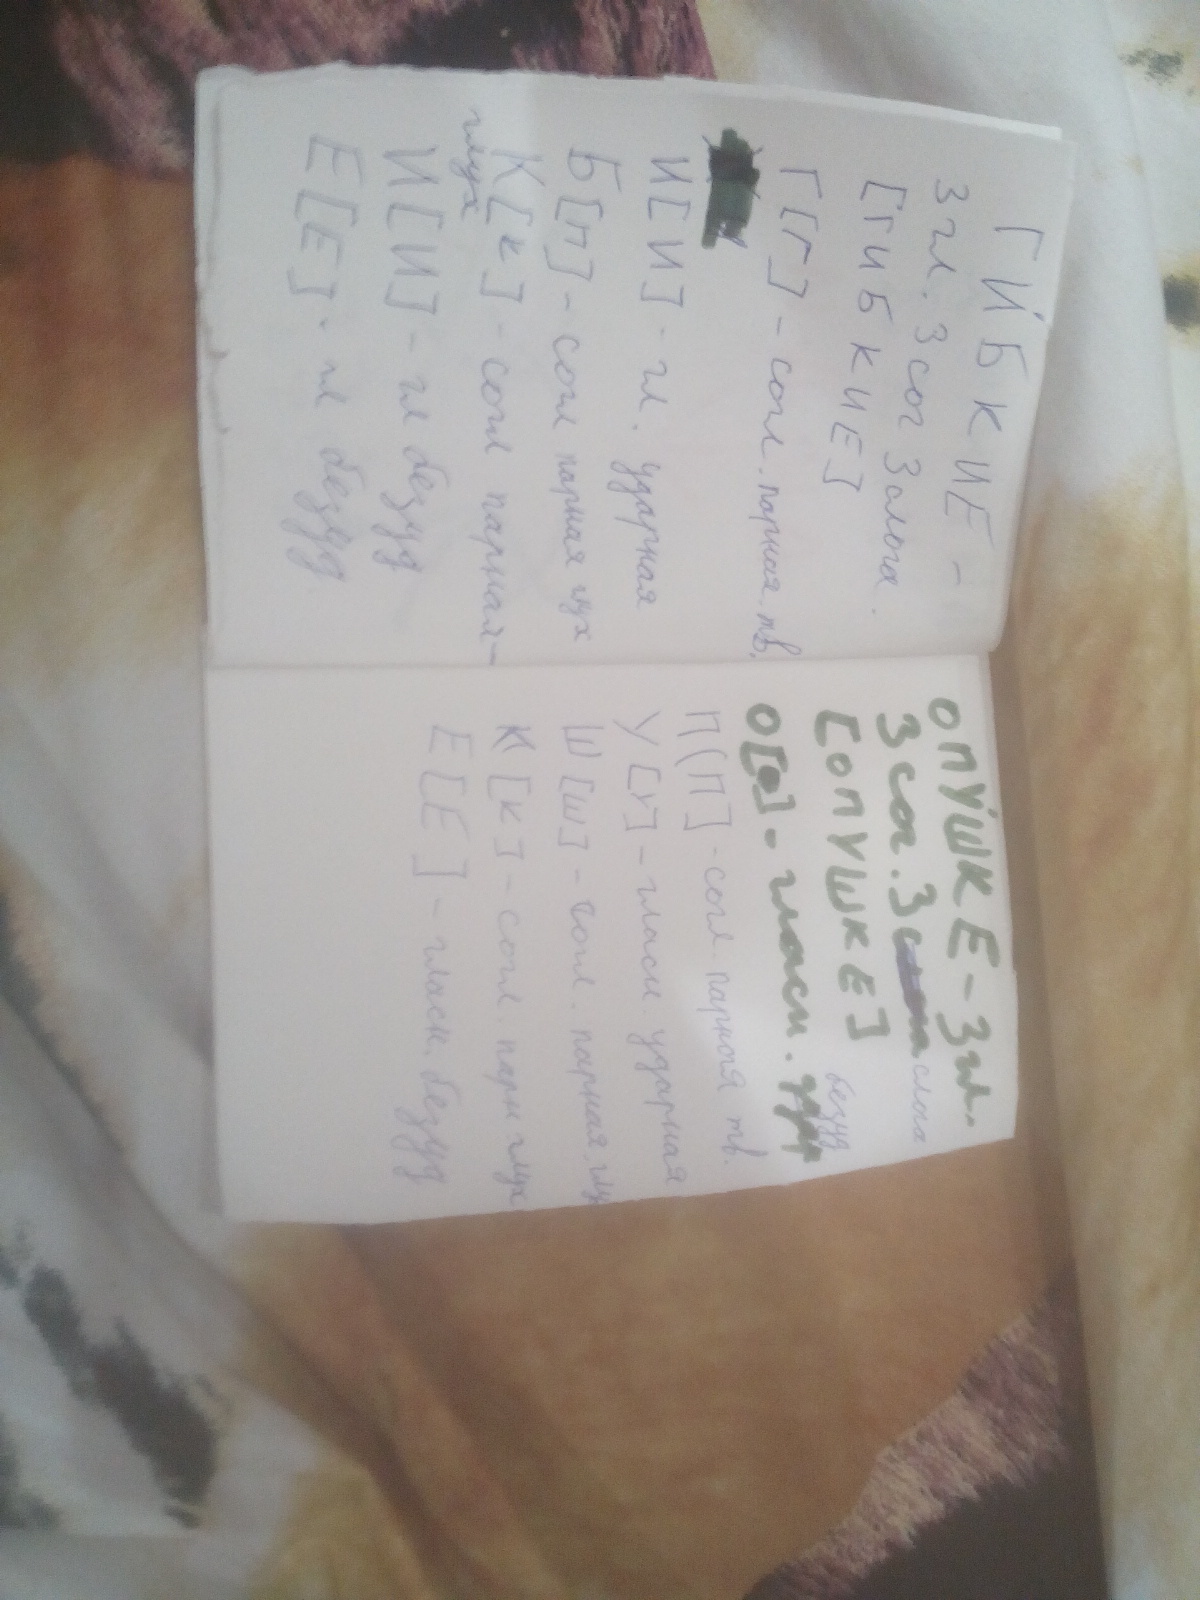 ГИ́БКИЕ -
3 гл. 3 сог 3 слога.
[ГИБКИЕ]
Г[Г] - согл. парная. тв.
И[И] - гл. ударная
Б[П] - согл парная глух
К[К] - согл парная-
глух
И[И] - гл безуд
Е[Е] - гл безуд
ОПУ́ШКЕ - 3 гл.
3 сог. 3 слога
[ОПУШКЕ]
безуд
О[О] - гласн.
П(П] - согл. парная тв.
У[У] - гласн. ударная
Ш[Ш] - согл. парная, глу
К[К] - согл. парн глух
Е[Е] - гласн. безуд